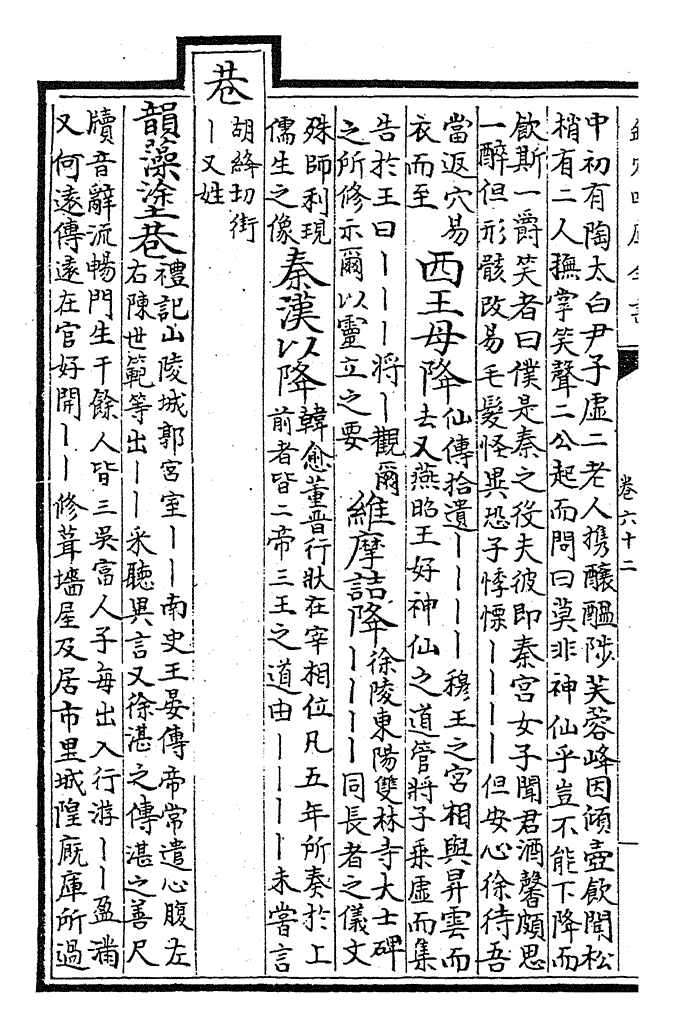 欽定四庫全書
卷六十二
中初有陶太白尹子虛二老人攜釀醞陟芙蓉峰因傾壺飲聞松
梢有二人撫掌笑聲二公起而問曰莫非神仙乎豈不能下降而
飲斯一爵笑者曰僕是秦之役夫彼即秦宮女子聞君酒馨頗思
一醉但形骸改易毛髮怪異恐子悸慄丨丨丨丨但安心徐待吾
當返穴易
衣而至
西王母降
仙傳拾遺丨丨丨丨穆王之宮相與昇雲而
去又燕昭王好神仙之道管將子乘虛而集
告於王曰丨丨丨將丨觀爾
之所修示爾以靈立之要
維摩詰降
徐陵東陽雙林寺大士碑
丨丨丨丨同長者之儀文
殊師利現
儒生之像
秦漢以降
韓愈董晉行狀在宰相位凡五年所奏於上
前者皆二帝三王之道由丨丨丨丨未嘗言
巷
胡絳切街
丨又姓
韻藻塗巷
禮記山陵城郭宮室丨丨南史王晏傳帝常遣心腹左
右陳世範等出丨丨采聽異言又徐湛之傳湛之善尺
牘音辭流暢門生千餘人皆三吳富人子每出入行游丨丨盈滿
又何遠傳遠在官好開丨丨修葺墻屋及居市里城隍廄庫所過